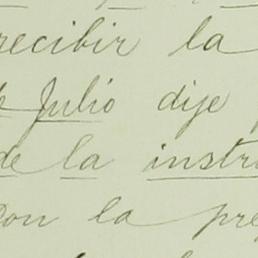 recibir la
Julio dije
de la instr
Con la pre